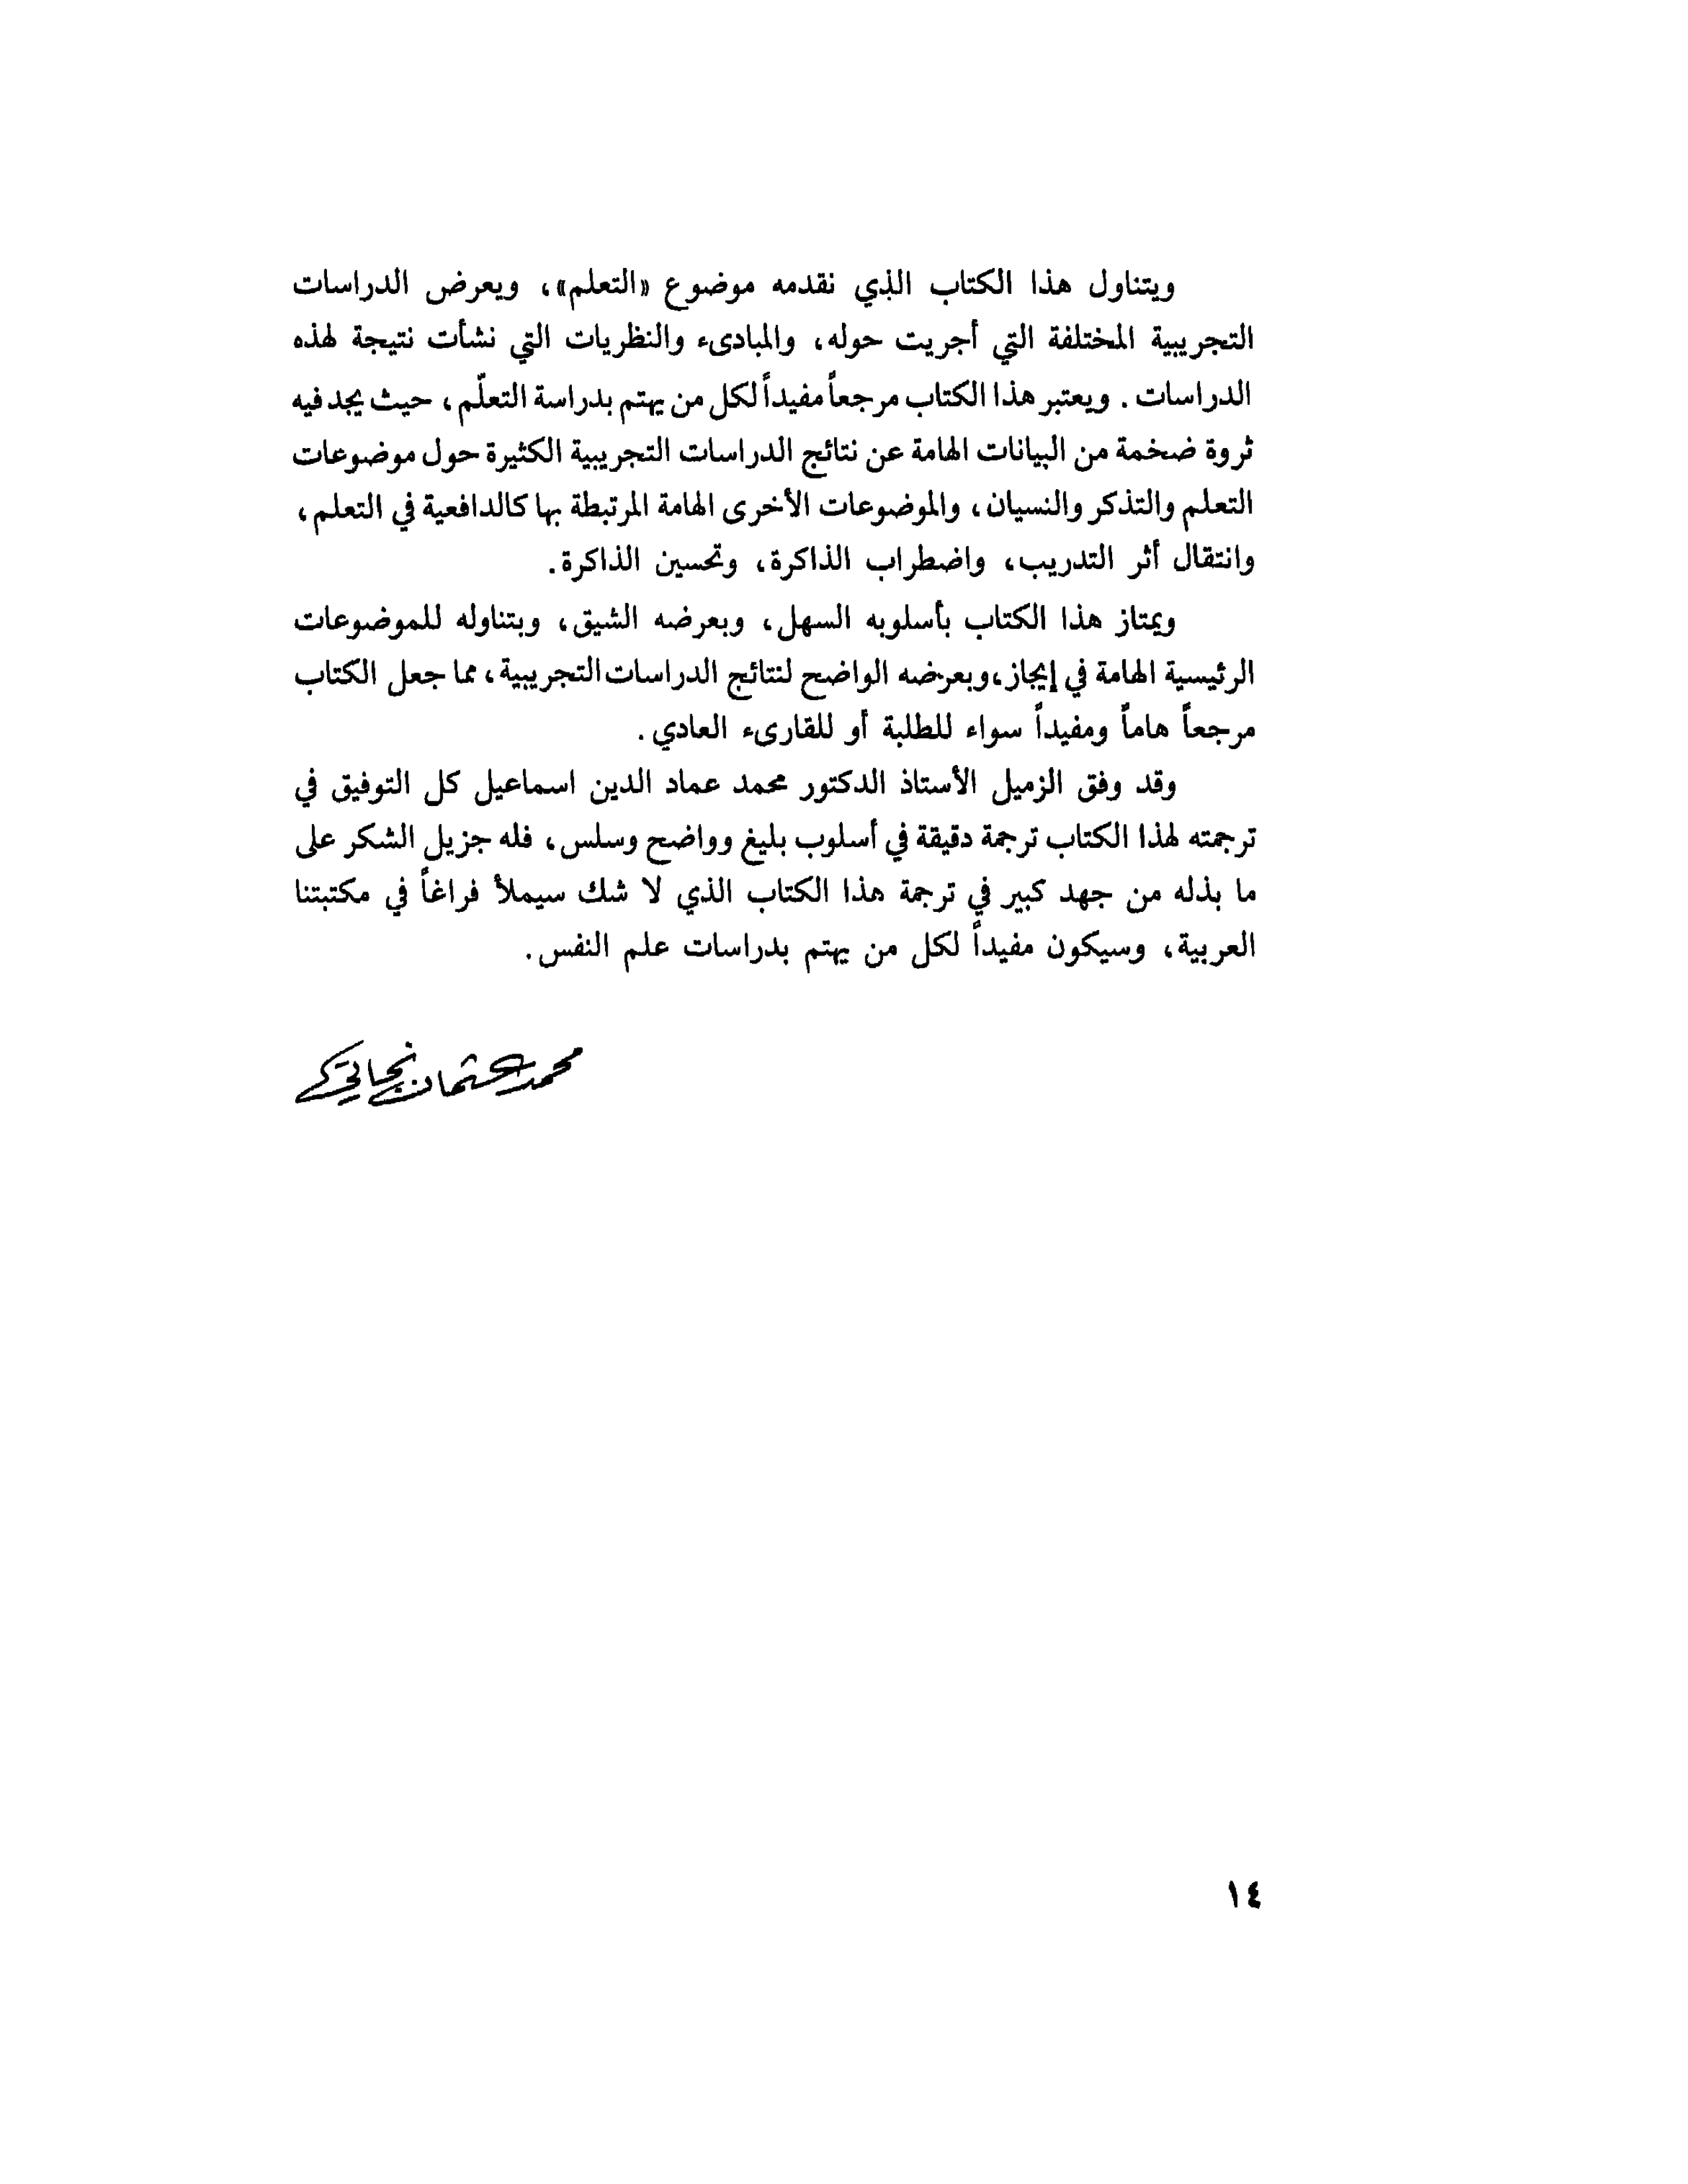 ويتناول هذا الكتاب الذي نقدمه موضوع «التعلم»، ويعرض الدراسات
التجريبية المختلفة التي أجريت حوله، والمبادىء والنظريات التي نشأت نتيجة لهذه
الدراسات . ويعتبر هذا الكتاب مرجعاً مفيداً لكل من يهتم بدراسة التعلّم، حيث يجد فيه
ثروة ضخمة من البيانات الهامة عن نتائج الدراسات التجريبية الكثيرة حول موضوعات
التعلم والتذكر والنسيان، والموضوعات الأخرى الهامة المرتبطة بها كالدافعية في التعلم،
وانتقال أثر التدريب، واضطراب الذاكرة، وتحسين الذاكرة.
ويمتاز هذا الكتاب بأسلوبه السهل، وبعرضه الشيق، وبتناوله للموضوعات
الرئيسية الهامة في إيجاز، وبعرضه الواضح لنتائج الدراسات التجريبية، مما جعل الكتاب
مرجعاً هاماً ومفيداً سواء للطلبة أو للقارىء العادي.
وقد وفق الزميل الأستاذ الدكتور محمد عماد الدين اسماعيل كل التوفيق في
ترجمته لهذا الكتاب ترجمة دقيقة في أسلوب بليغ وواضح وسلس، فله جزيل الشكر على
ما بذله من جهد كبير في ترجمة هذا الكتاب الذي لا شك سيملأ فراغاً في مكتبتنا
العربية، وسيكون مفيداً لكل من يهتم بدراسات علم النفس.
محمد عثمان نجاتي
١٤